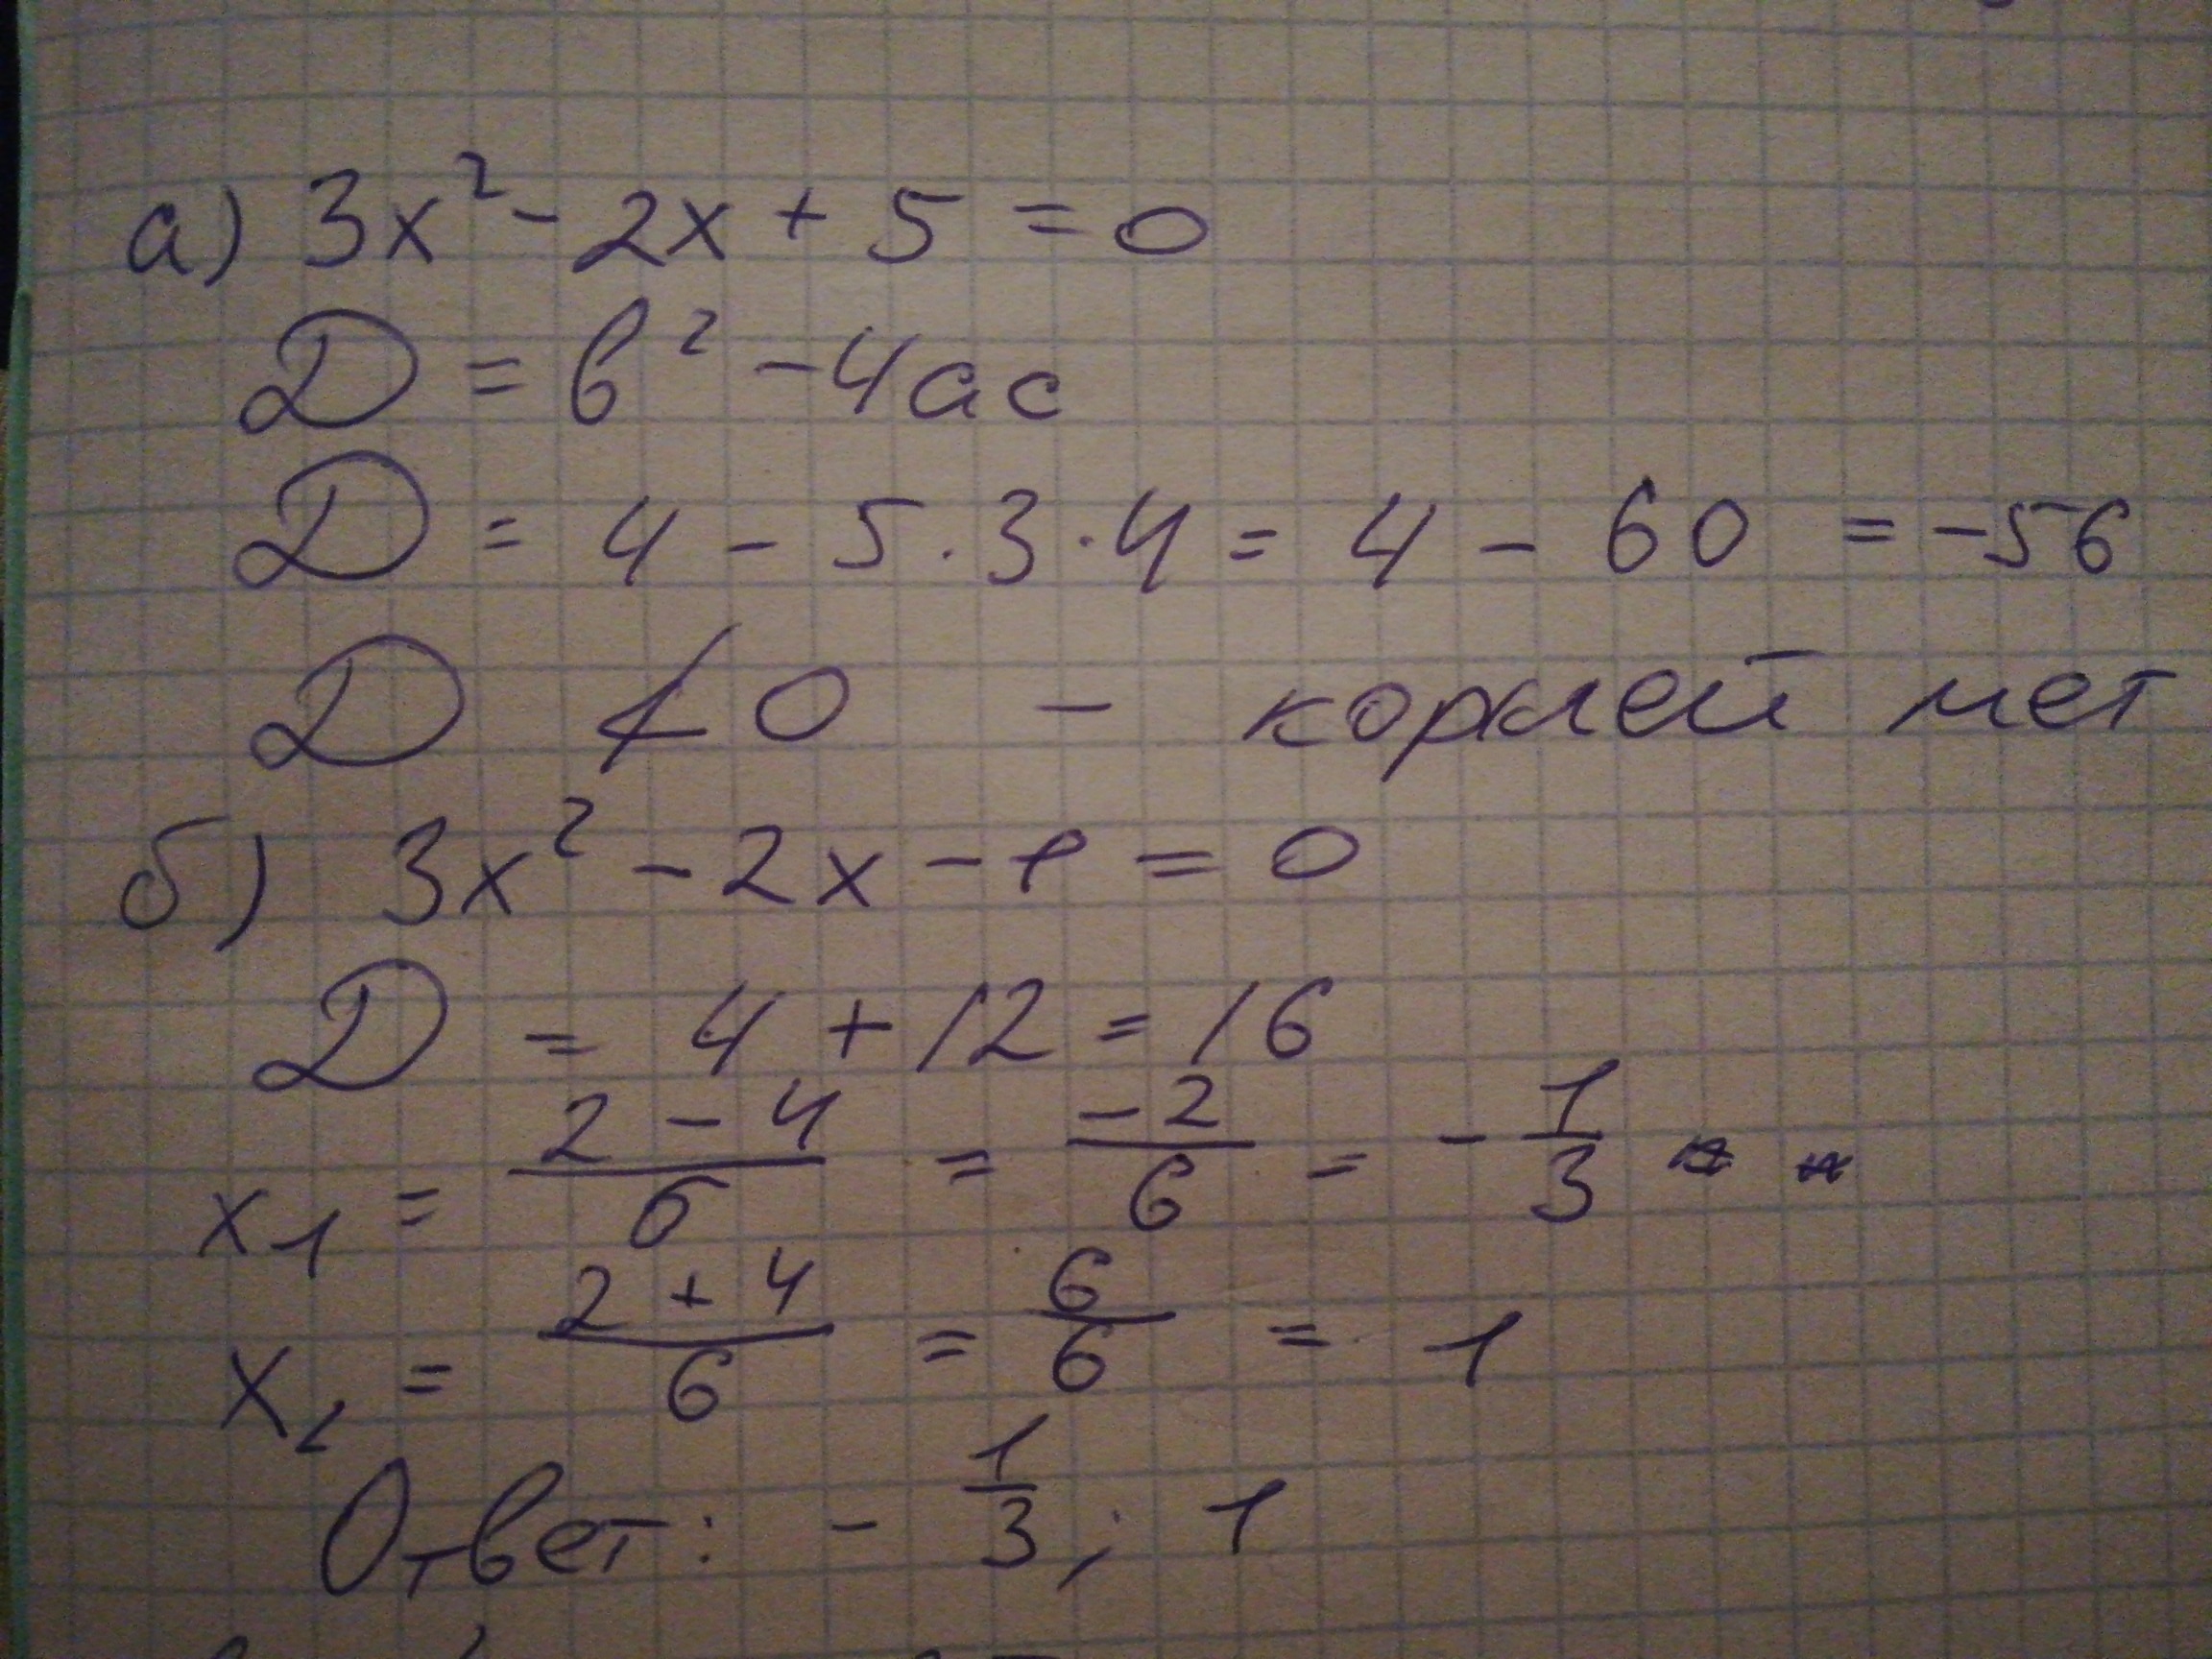 а) 3x² - 2x + 5 = 0
D = b² - 4ac
D = 4 - 5 · 3 · 4 = 4 - 60 = -56
D < 0 - корней нет
б) 3x² - 2x - 1 = 0
D = 4 + 12 = 16
x₁ = (2 - 4)/6 = -2/6 = -1/3
x₂ = (2 + 4)/6 = 6/6 = 1
Ответ: - 1/3 ; 1